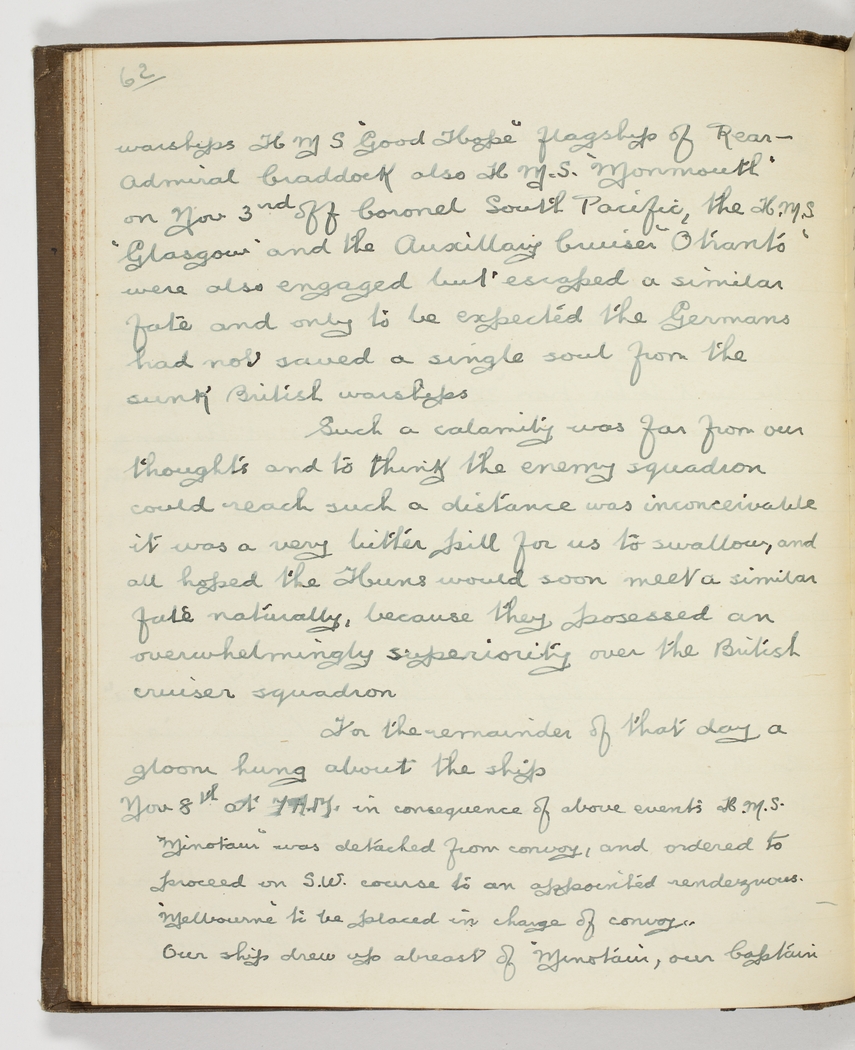 62
warships H M S "Good Hope" flagship of Rear-
Admiral Craddock also H M.S. "Monmouth"
on Nov 3rd off Coronel South Pacific, the H.M.S
"Glasgow" and the Auxillary Cruiser "Otranto"
were also engaged but escaped a similar
fate and only to be expected the Germans
had not saved a single soul from the
sunk British warships
Such a calamity was far from our
thoughts and to think the enemy squadron
could reach such a distance was inconceivable
it was a very bitter pill for us to swallow, and
all hoped the Huns would soon meet a similar
fate naturally, because they posessed an
overwhelmingly superiority over the British
cruiser squadron
For the remainder of that day a
gloom hung about the ship
Nov 8th at 7 A.M. in consequence of above events H.M.S.
"Minotaur" was detached from convoy, and ordered to
proceed on S.W. course to an appointed rendezvous.
"Melbourne" to be placed in charge of convoy.
Our ship drew up abreast of "Minotaur, our Captain